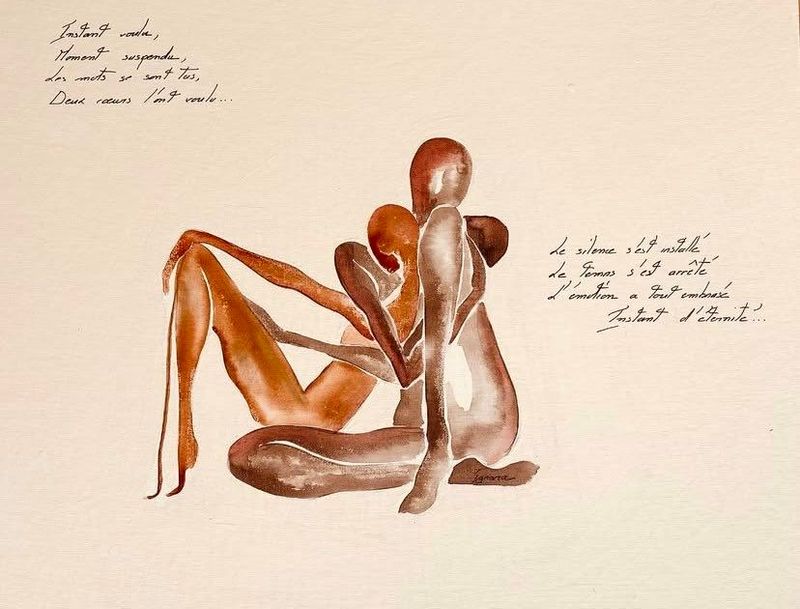 Instant voulu,
Moment suspendu,
Les mots se sont tus,
Deux cœurs l'ont voulu...
Le silence s'est installé
Le temps s'est arrêté
L'émotion a tout embrasé
Instant d'éternité...